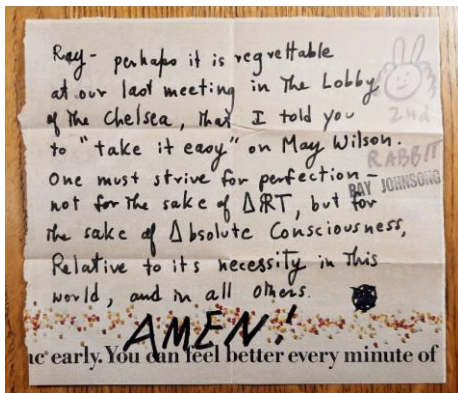 Ray - perhaps it is regrettable
at our last meeting in The Lobby
of The Chelsea, That I told you
to "take it easy" on May Wilson.
One must strive for perfection -
not for the sake of ART, but for
The sake of Absolute Consciousness,
Relative to its necessity in This
world, and in all others.
AMEN!
2nd
RABBIT
RAY JOHNSONG
ac early. You can feel better every minute of